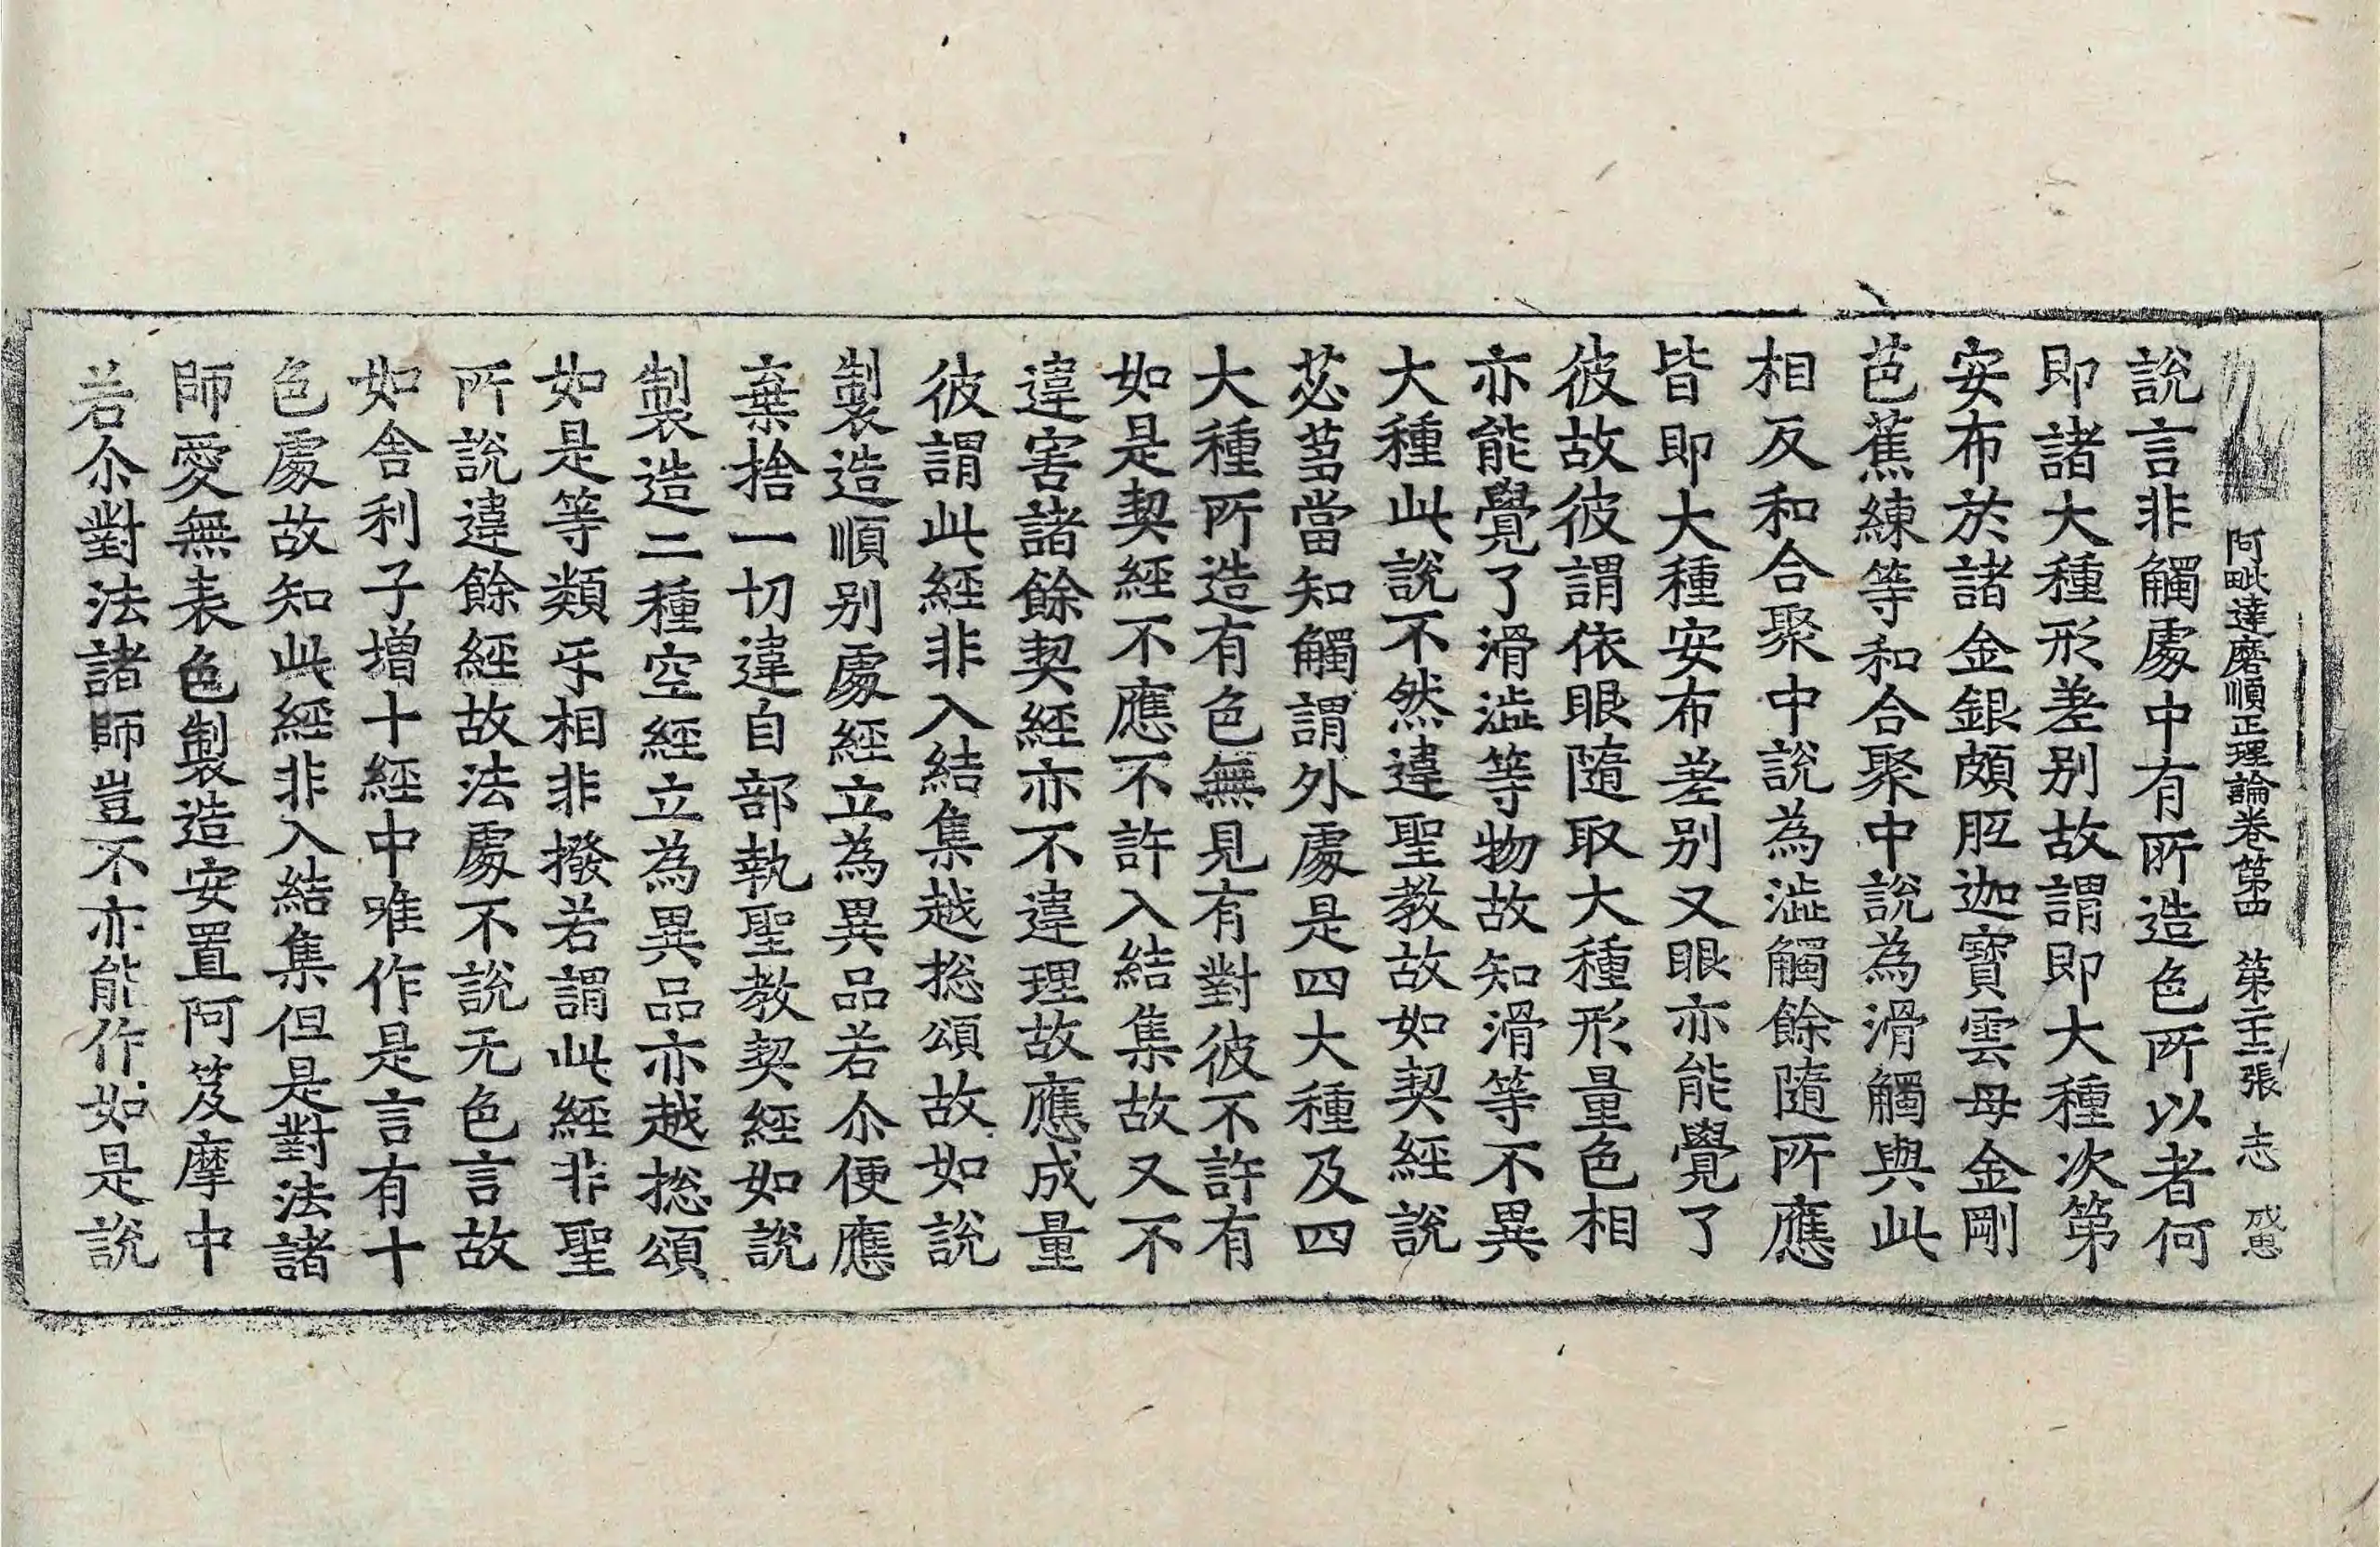 阿毗達磨順正理論卷第四 第二十二張 志 
說言非觸處中有所造色所以者何
即諸大種形差別故謂即大種次第
安布於諸金銀頗胝迦寶雲母金剛
芭蕉練等和合聚中說為滑觸與此
相反和合聚中說為澁觸餘隨所應
皆即大種安布差別又眼亦能覺了
彼故彼謂依眼隨取大種形量色相
亦能覺了滑澁等物故知滑等不異
大種此說不然違聖教故如契經說
苾芻當知觸謂外處是四大種及四
大種所造有色無見有對彼不許有
如是契經不應不許入結集故又不
違害諸餘契經亦不違理故應成量
彼謂此經非入結集越捴頌故如說
製造順別處經立為異品若尒便應
棄捨一切違自部執聖教契經如說
製造二種空經立為異品亦越捴頌
如是等類乎相非撥若謂此經非聖
所說違餘經故法處不說无色言故
如舍利子增十經中唯作是言有十
色處故知此經非入結集但是對法諸
師愛無表色製造安置阿笈摩中
若尒對法諸師豈不亦能作如是說